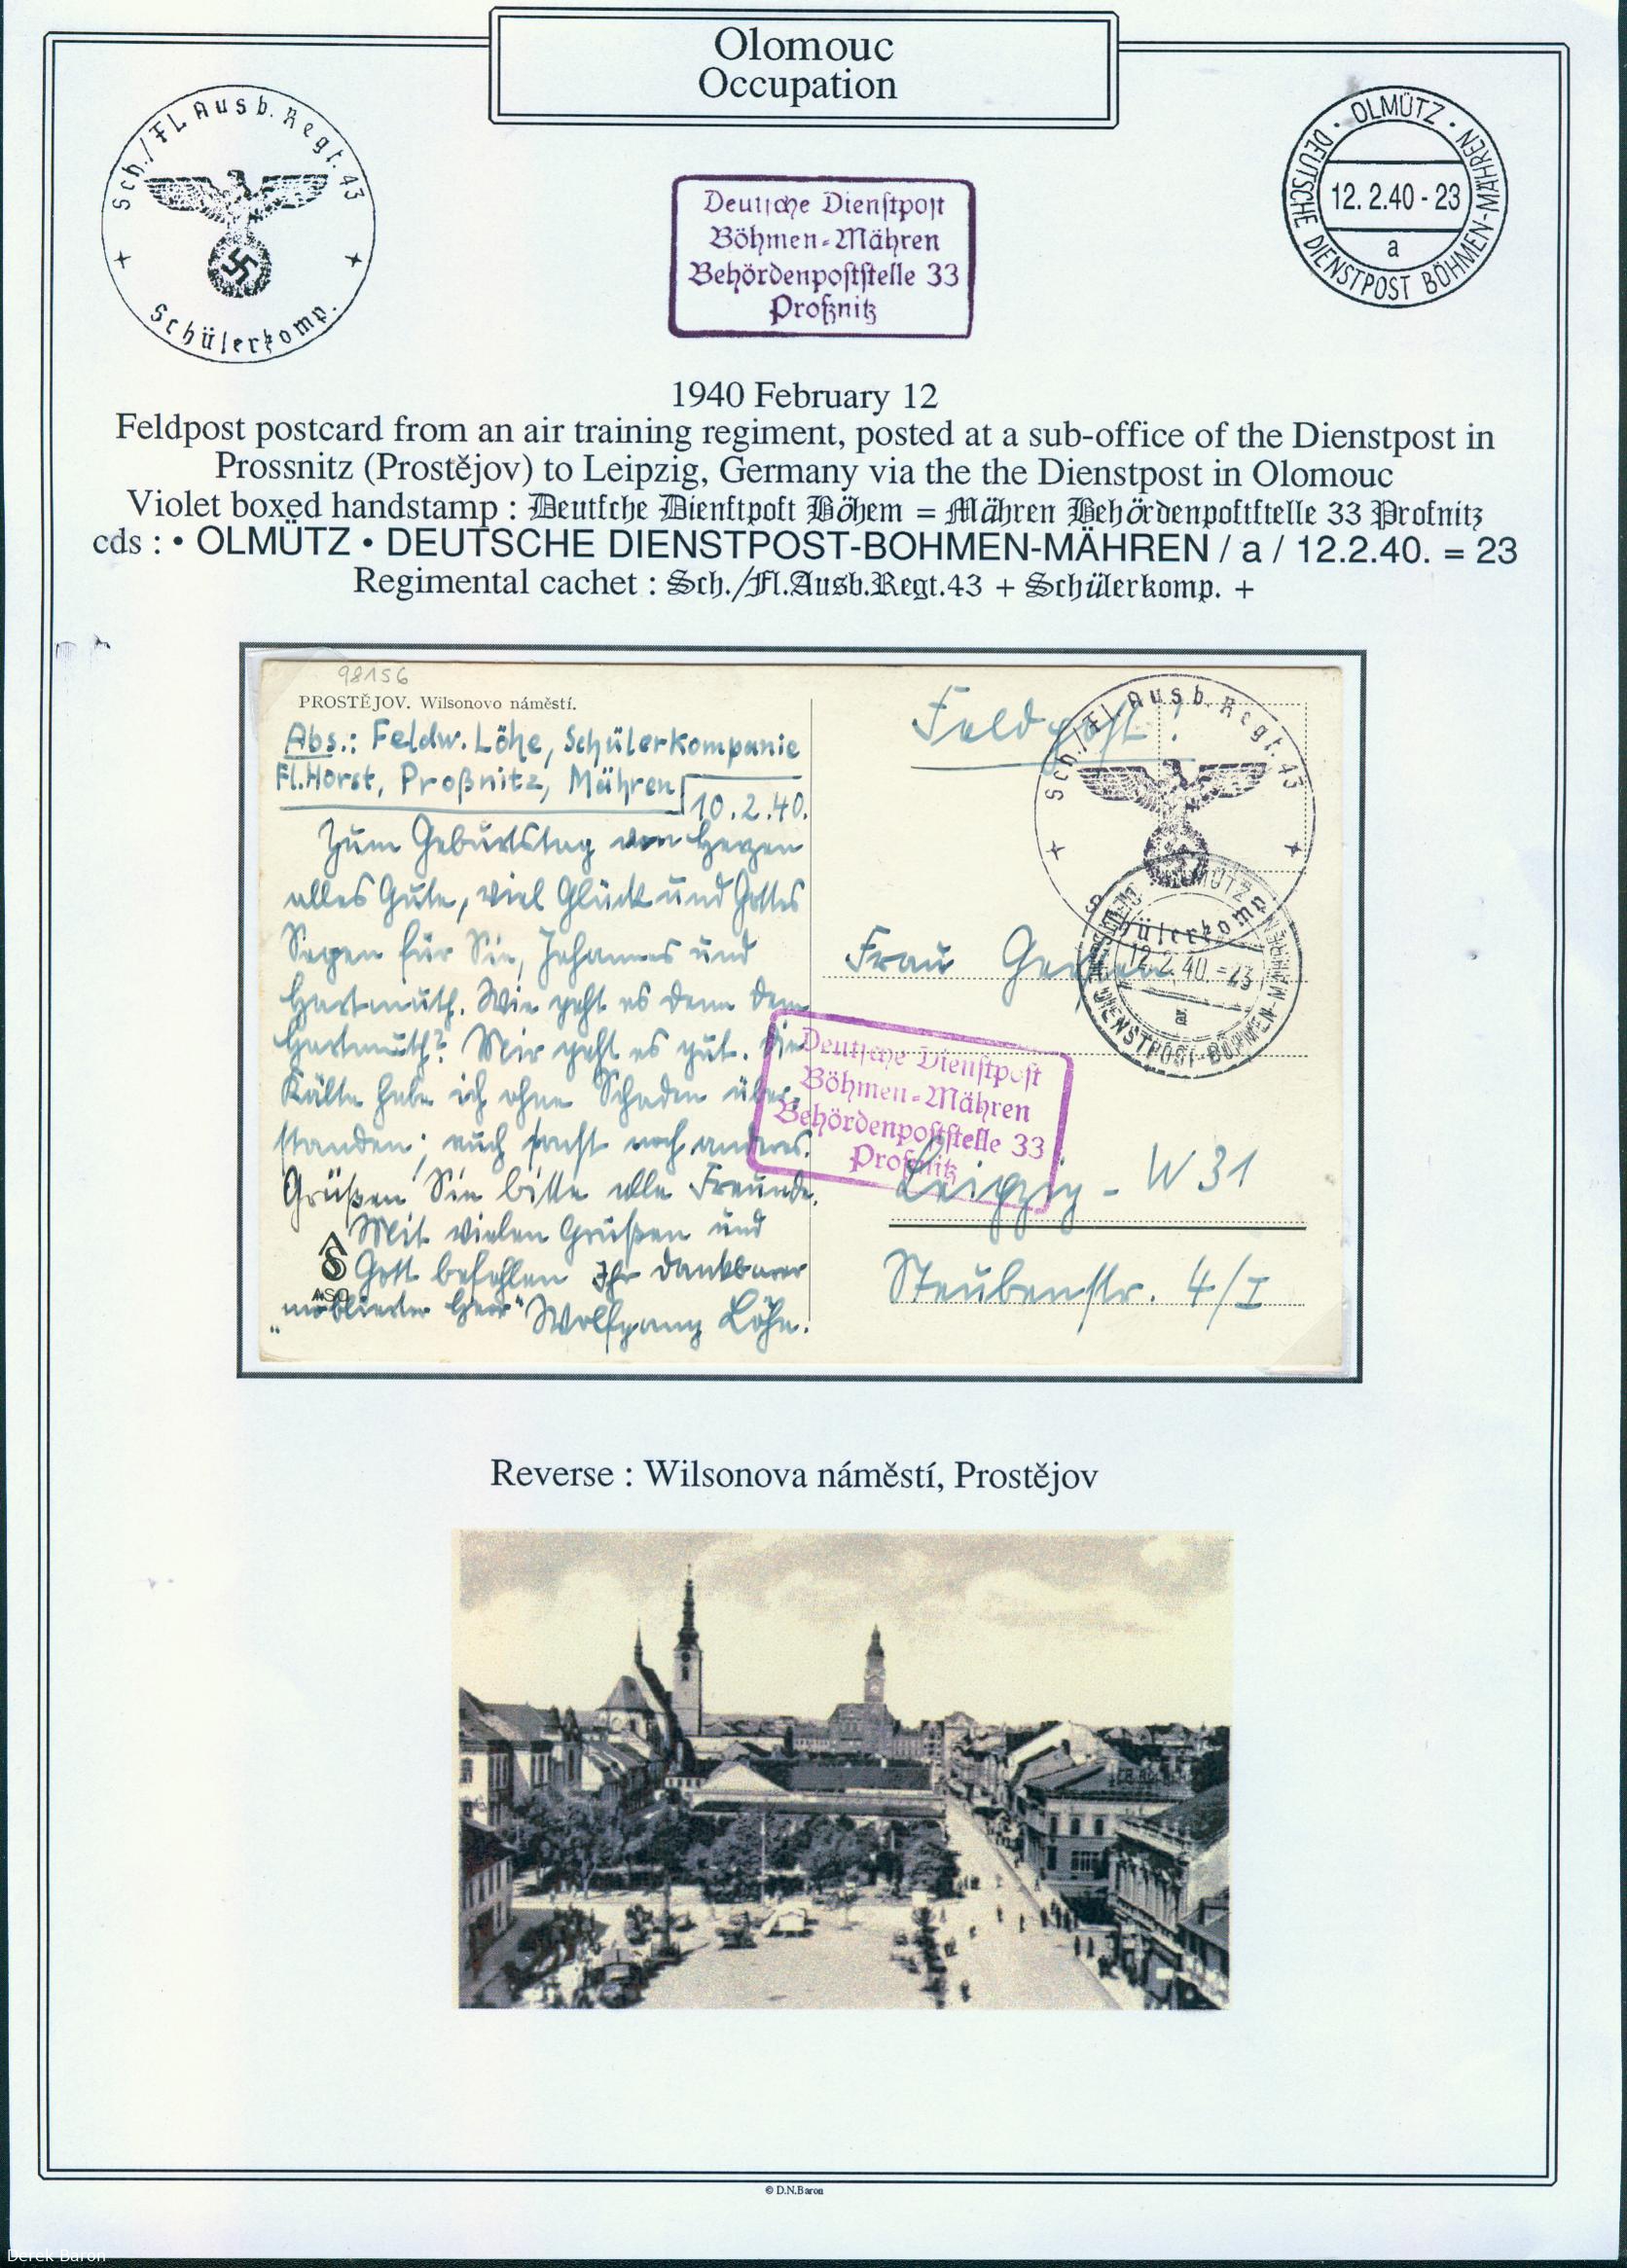 Olomouc
Occupation
Sch./Fl. Ausb. Regt. 43
+ Schülerkomp. +
Deutsche Dienstpost
Böhmen-Mähren
Behördenpoststelle 33
Proßnitz
• OLMÜTZ •
DEUTSCHE DIENSTPOST BÖHMEN-MÄHREN
12. 2.40 - 23
a
1940 February 12
Feldpost postcard from an air training regiment, posted at a sub-office of the Dienstpost in
Prossnitz (Prostějov) to Leipzig, Germany via the the Dienstpost in Olomouc
Violet boxed handstamp : Deutsche Dienstpost Böhem = Mähren Behördenpoststelle 33 Prosnitz
cds : • OLMÜTZ • DEUTSCHE DIENSTPOST-BOHMEN-MÄHREN / a / 12.2.40. = 23
Regimental cachet : Sch./Fl.Ausb.Regt.43 + Schülerkomp. +
98156
PROSTĚJOV. Wilsonovo náměstí.
Abs.: Feldw. Löhe, Schülerkompanie
Fl.Horst, Proßnitz, Mähren
10.2.40.
Zum Geburtstag von Herzen
alles Gute, viel Glück und Gottes
Segen für Sie, Johannes und
Hartmuth. Wie geht es denn dem
Hartmuth? Mir geht es gut. Die
Kälte habe ich ohne Schaden über-
standen; auch sonst noch anderes.
Grüßen Sie bitte alle Freunde.
Mit vielen Grüßen und
Gott befohlen Ihr dankbarer
„möblierter Herr" Wolfgang Löhe.
ASO
Feldpost!
Sch./Fl. Ausb. Regt. 43
+ Schülerkomp. +
OLMÜTZ
DIENSTPOST-BÖHMEN-MÄHREN
12.2.40.=23
a
Frau
Deutsche Dienstpost
Böhmen-Mähren
Behördenpoststelle 33
Proßnitz
Leipzig - W 31
Steubenstr. 4/I
Reverse : Wilsonova náměstí, Prostějov
© D.N.Baron
Derek Baron